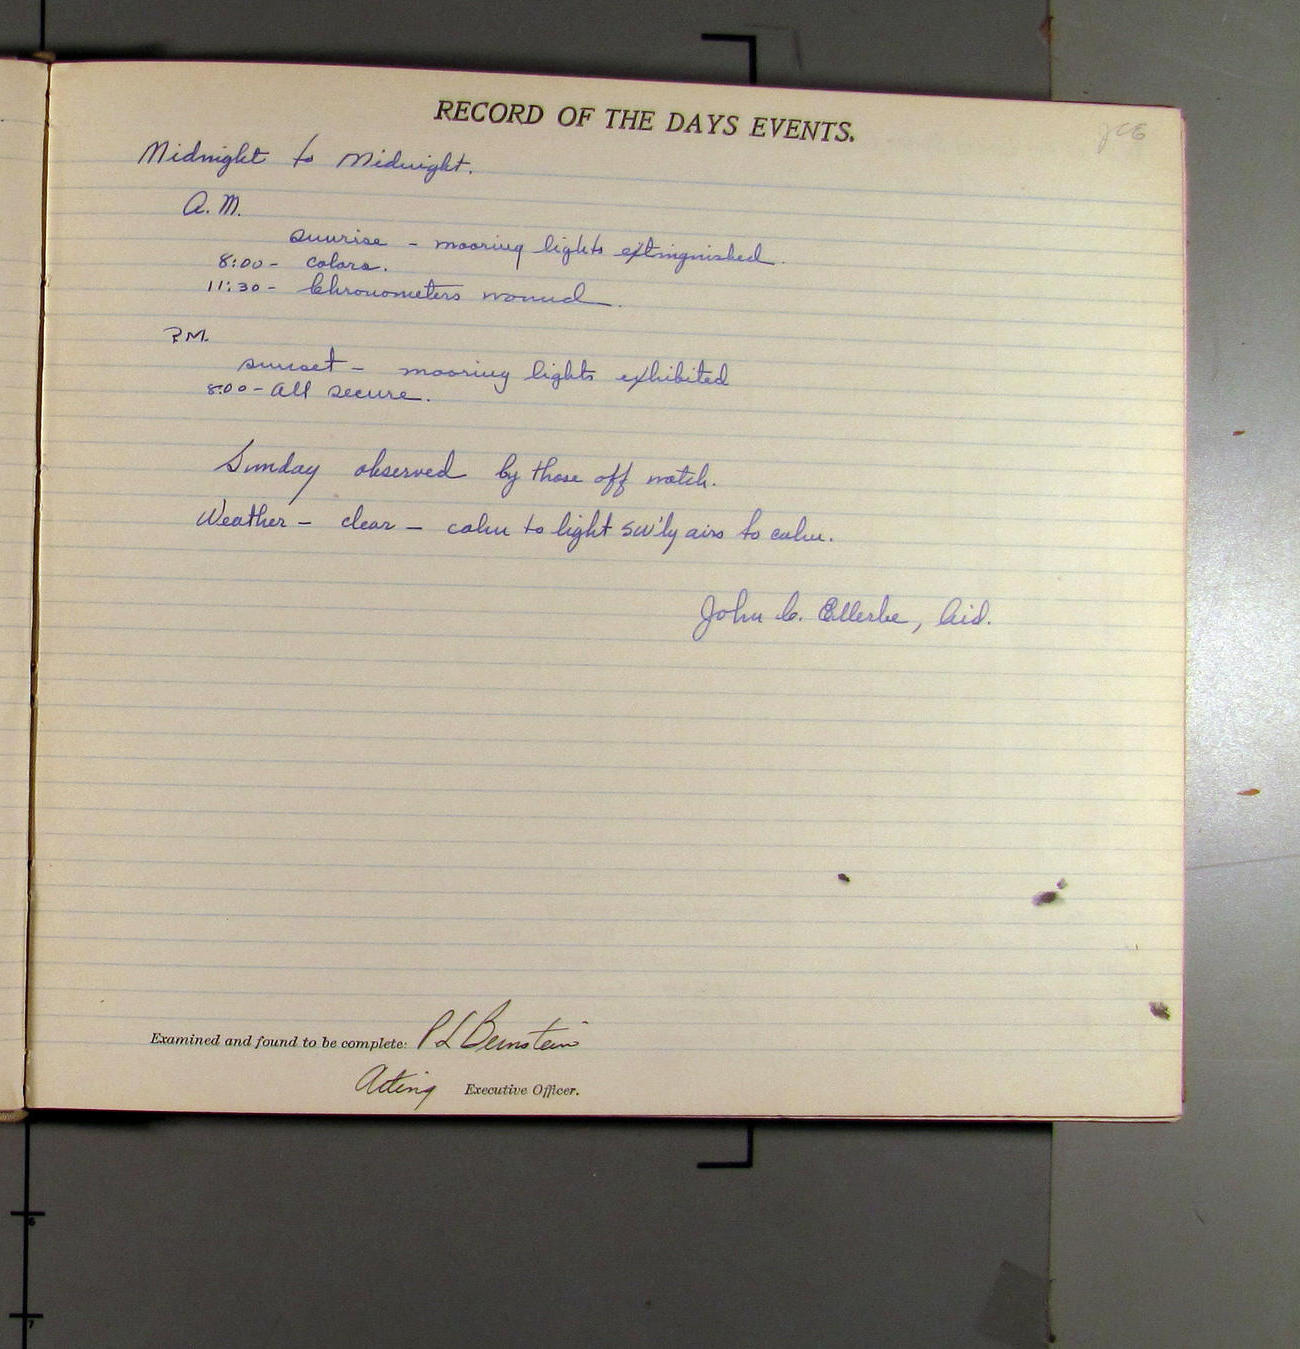 RECORD OF THE DAYS EVENTS.
JCE
Midnight to Midnight.
A.M.
sunrise - mooring lights extinguished.
8:00 - colors.
11:30 - Chronometers wound.
P.M.
sunset - mooring lights exhibited
8:00 - All secure.
Sunday observed by those off watch.
Weather - clear - calm to light SW'ly airs to calm.
John C. Ellerbe, Aid.
Examined and found to be complete: P L Bernstein
Acting Executive Officer.
6
7